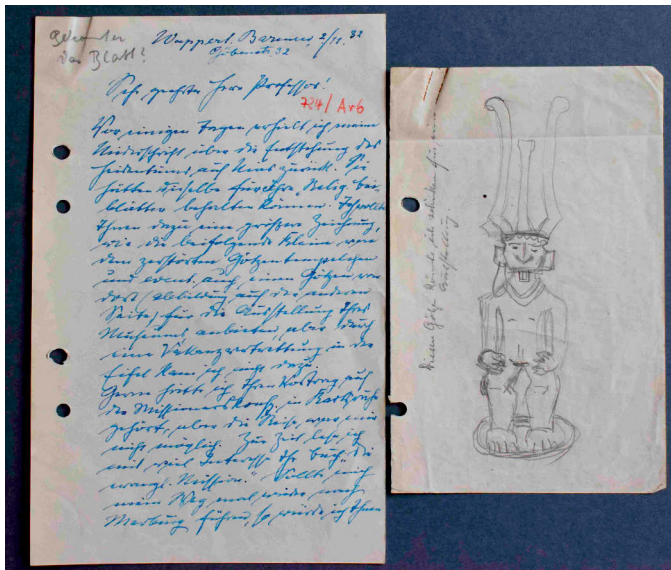 Bekomme
das Blatt?
Wuppert. Barmen, 2/11. 32
Sehr geehrter Herr Professor!
724/Arb
Vor einigen Tagen erhielt ich meine
Niederschrift über die Entstehung des
Heidentums auf Nias zurück. Sie
hätten dieselbe für Ihre Relig. bei-
blätter behalten können. Ich wollte
Ihnen dazu eine größere Zeichnung,
wie die beifolgende kleine, von
dem zerstörten Götzentempelchen
und event. auch einen Götzen von
dort (Abbildung auf der anderen
Seite) für die Ausstellung Ihres
Museums anbieten, aber durch
eine Vakanzvertretung in der
Eifel kam ich nicht dazu.
Gern hätte ich Ihren Vortrag auf
der Missionskonf. in
gehört, aber die Reise war mir
nicht möglich. Zur Zeit lese ich
mit viel Interesse Ihr Buch „Die
evangl. Mission“. Sollte mich
mein Weg mal wieder nach
Marburg führen, so würde ich Ihnen
Diesen Götzen könnte ich schicken für eine
Ausstellung.